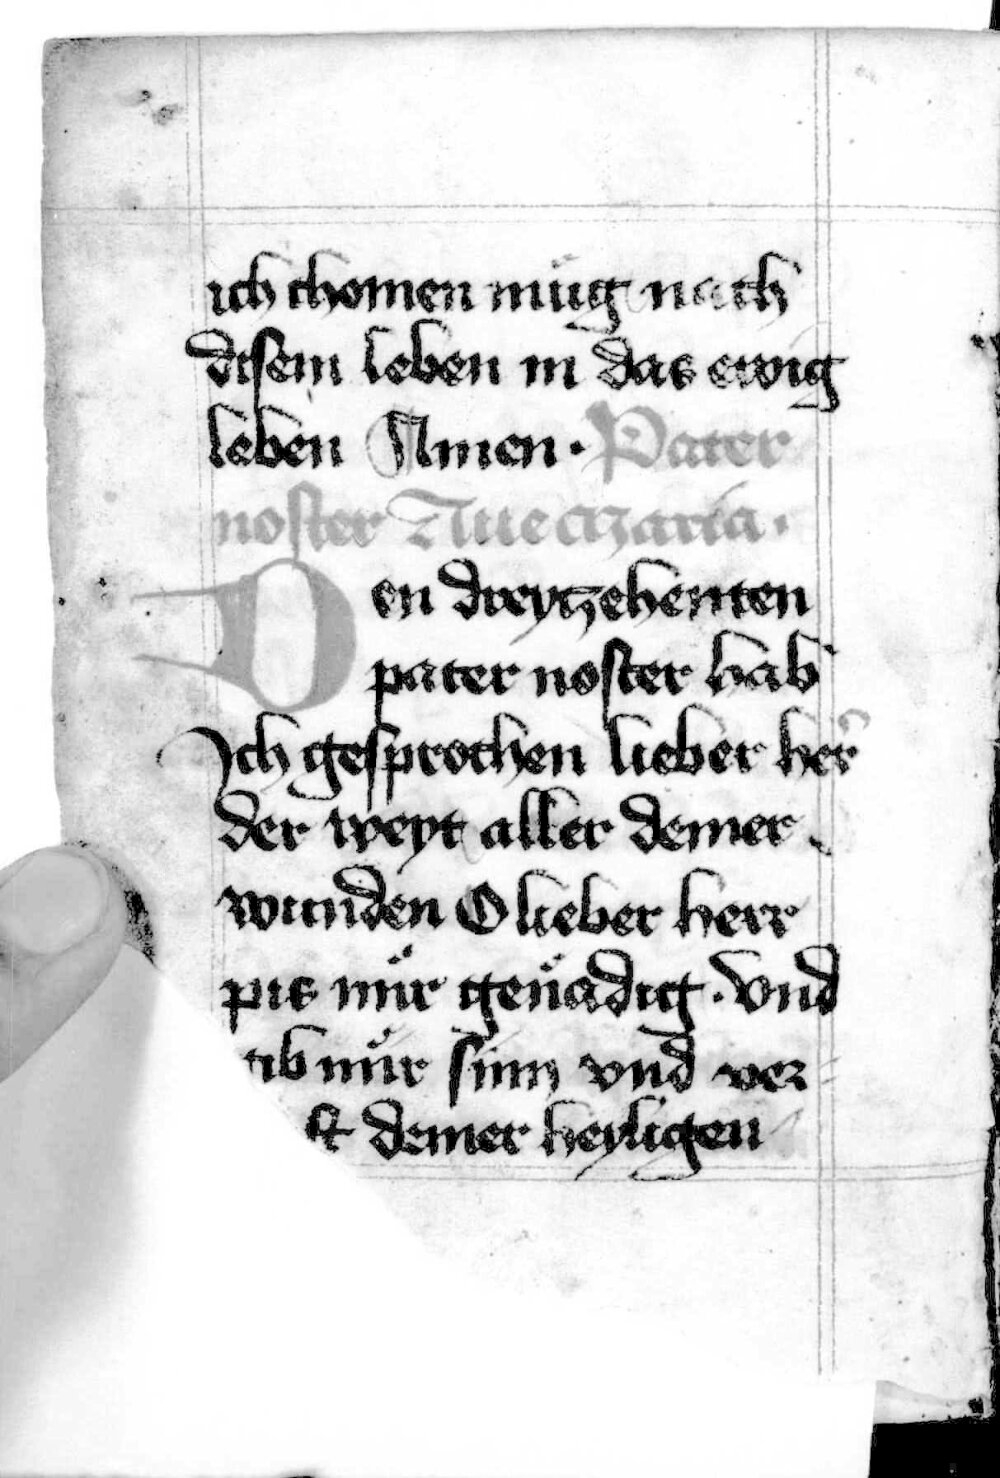 ich chomen müg nach
disem leben in das ewig
leben Amen · Pater
noster Aue maria ·
Den dreytzehenten
pater noster hab
Ich gesprochen lieber her
der weyt aller deiner
wunden O lieber herr
pis mir genadig · Vnd
gib mir sinn vnd ver
deiner heyligen